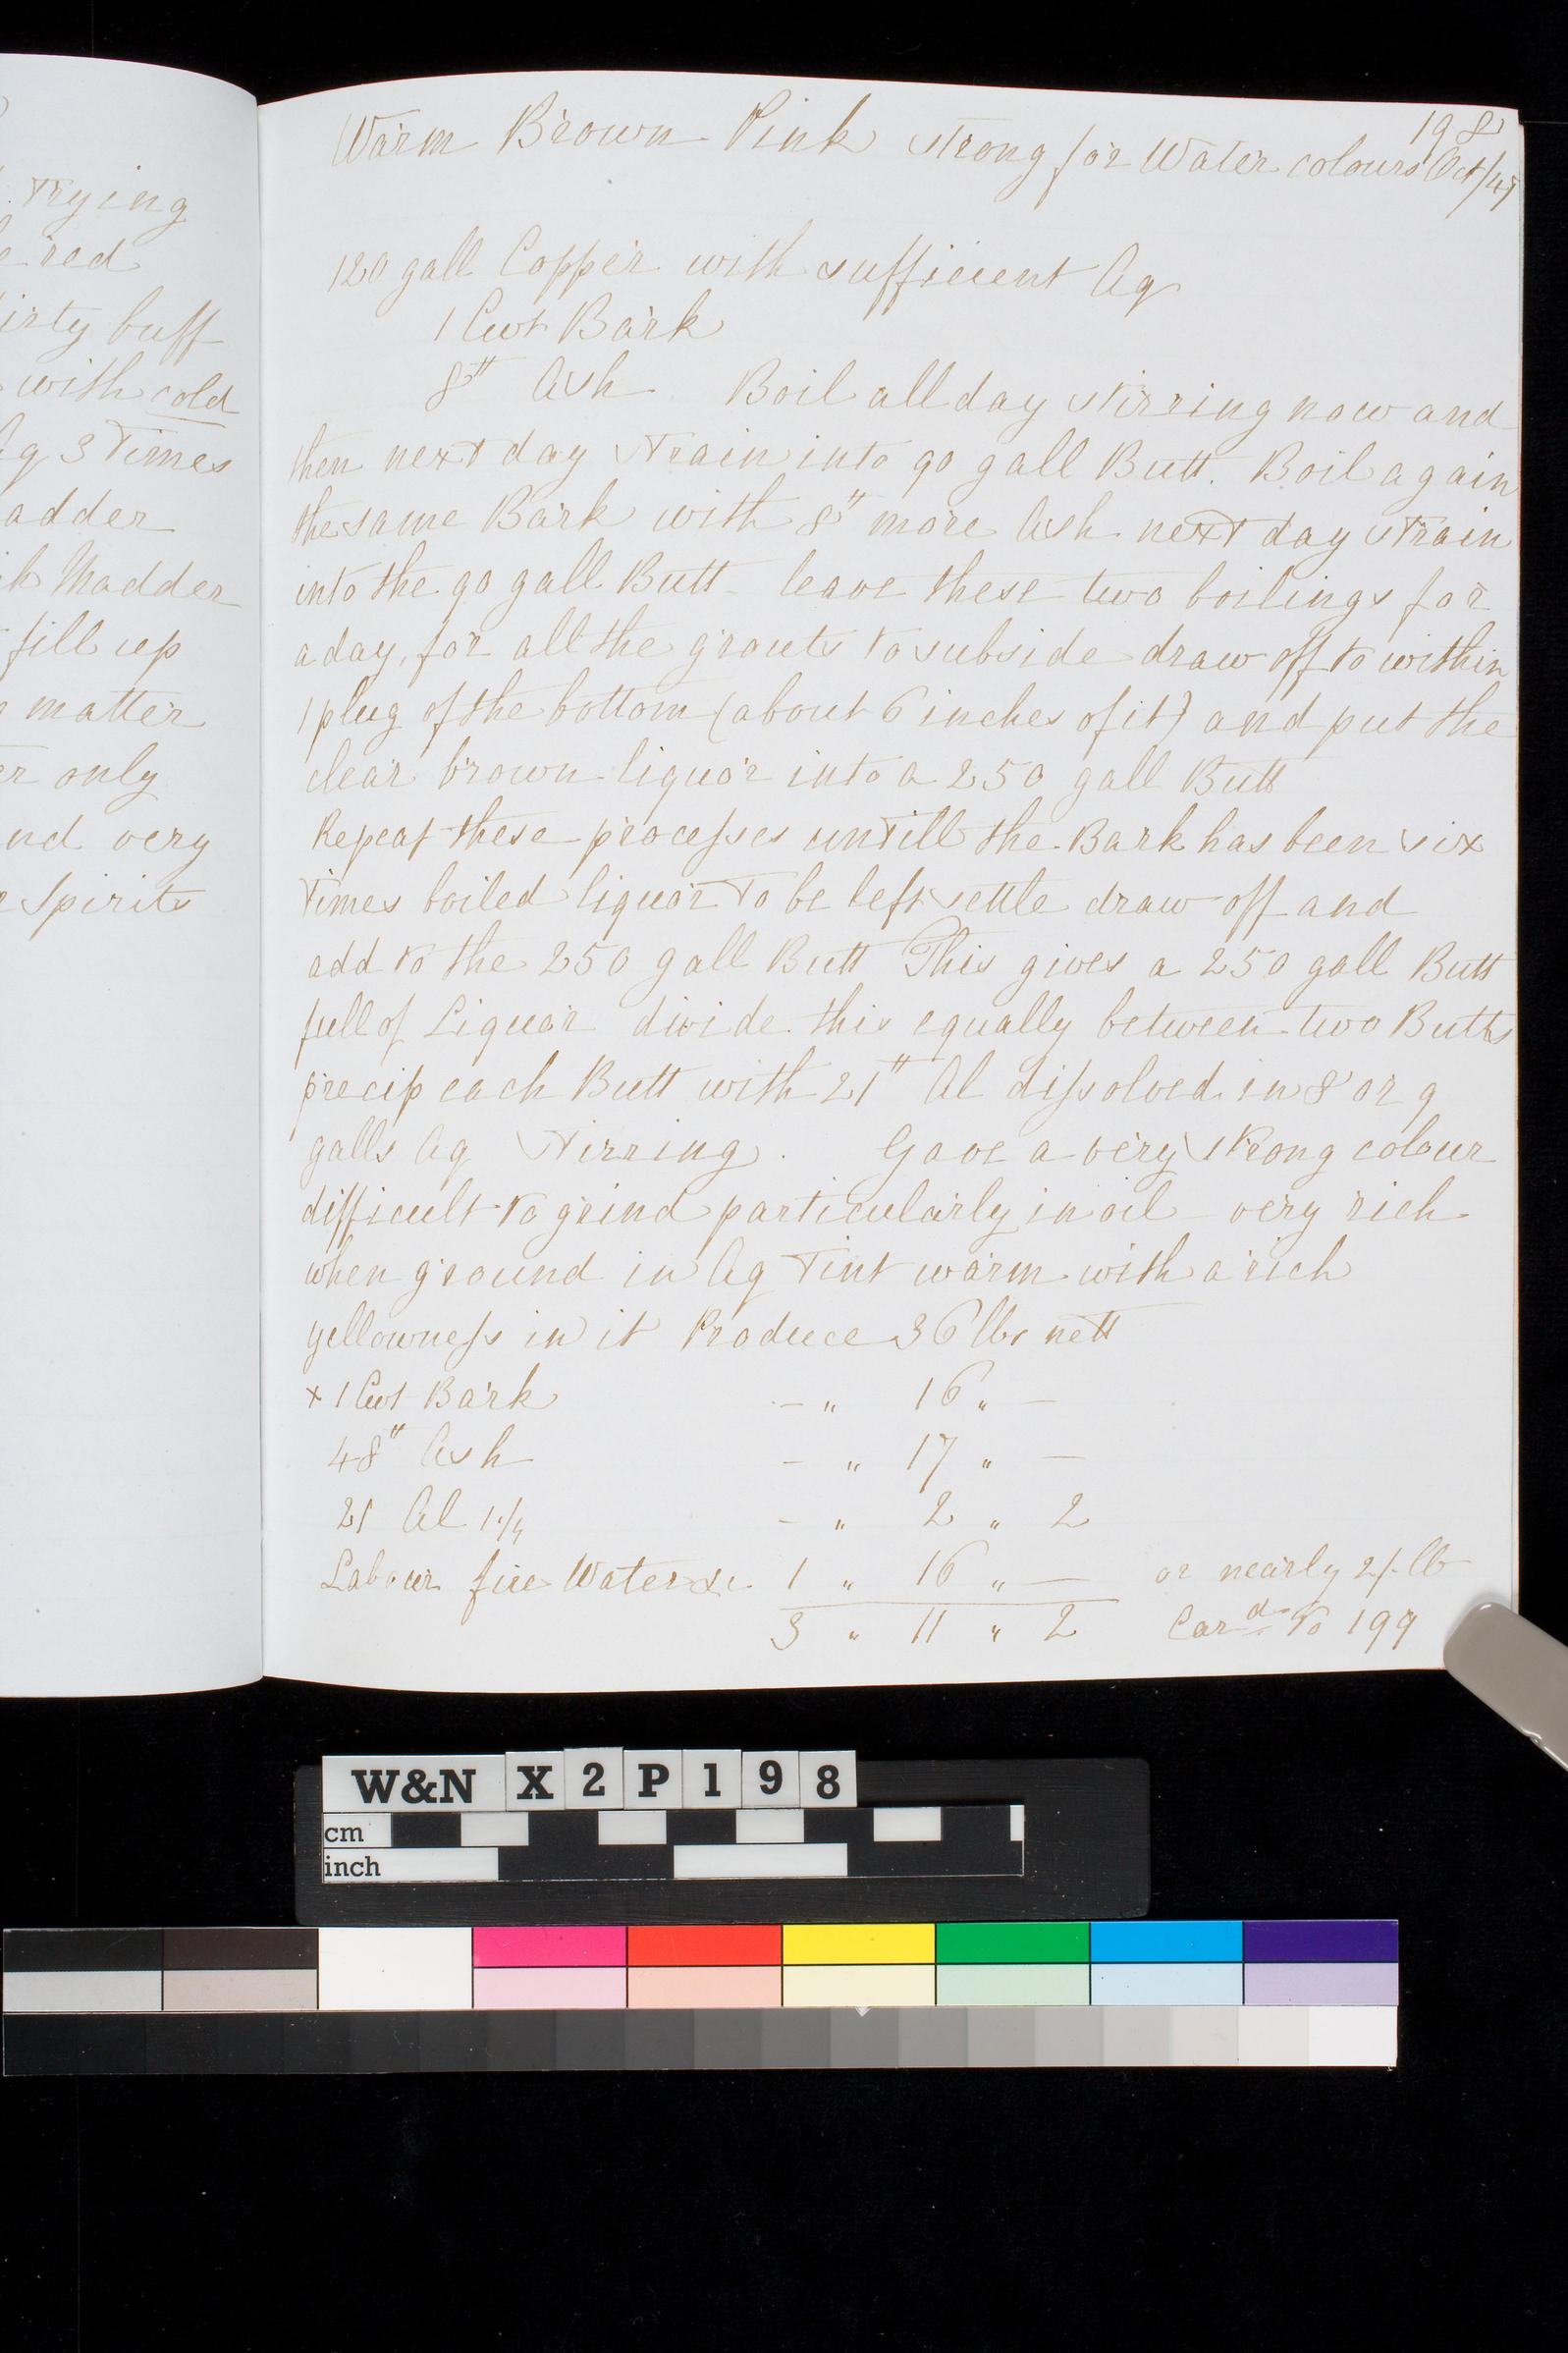 Trying
red
irty buff
with cold
Aq 3 Times
adder
Madder
fill up
matter
only
nd very
Spirits
198
Warm Brown Pink strong for Water colours Oct/47
120 gall Copper with sufficient Aq
1 Cwt Bark
8" Ash Boil all day stirring now and
then next day strain into 90 gall Butt. Boil again
the same Bark with 8" more Ash next day strain
into the 90 gall Butt - leave these two boilings for
a day, for all the grouts to subside draw off to within
1 plug of the bottom (about 6 inches of it) and put the
clear brown liquor into a 250 gall Butt
Repeat these processes untill the Bark has been six
Times boiled liquor to be left settle draw off and
add to the 250 gall Butt This gives a 250 gall Butt
full of Liquor divide this equally between two Butts
precip each Butt with 21" Al dissolved in 8 or 9
galls Aq stirring. Gave a very strong colour
difficult to grind particularly in oil very rich
when ground in Aq Tint warm with a rich
yellowness in it Produce 36 lbs nett
x 1 Cwt Bark - " 16 " -
48" Ash - " 17 " -
21 Al - " 2 " 2
Labour fire Water &c 1 " 16 " - or nearly 2/- lb
3 " 11 " 2 Car^d to 199
W&N X 2 P 1 9 8
cm
inch